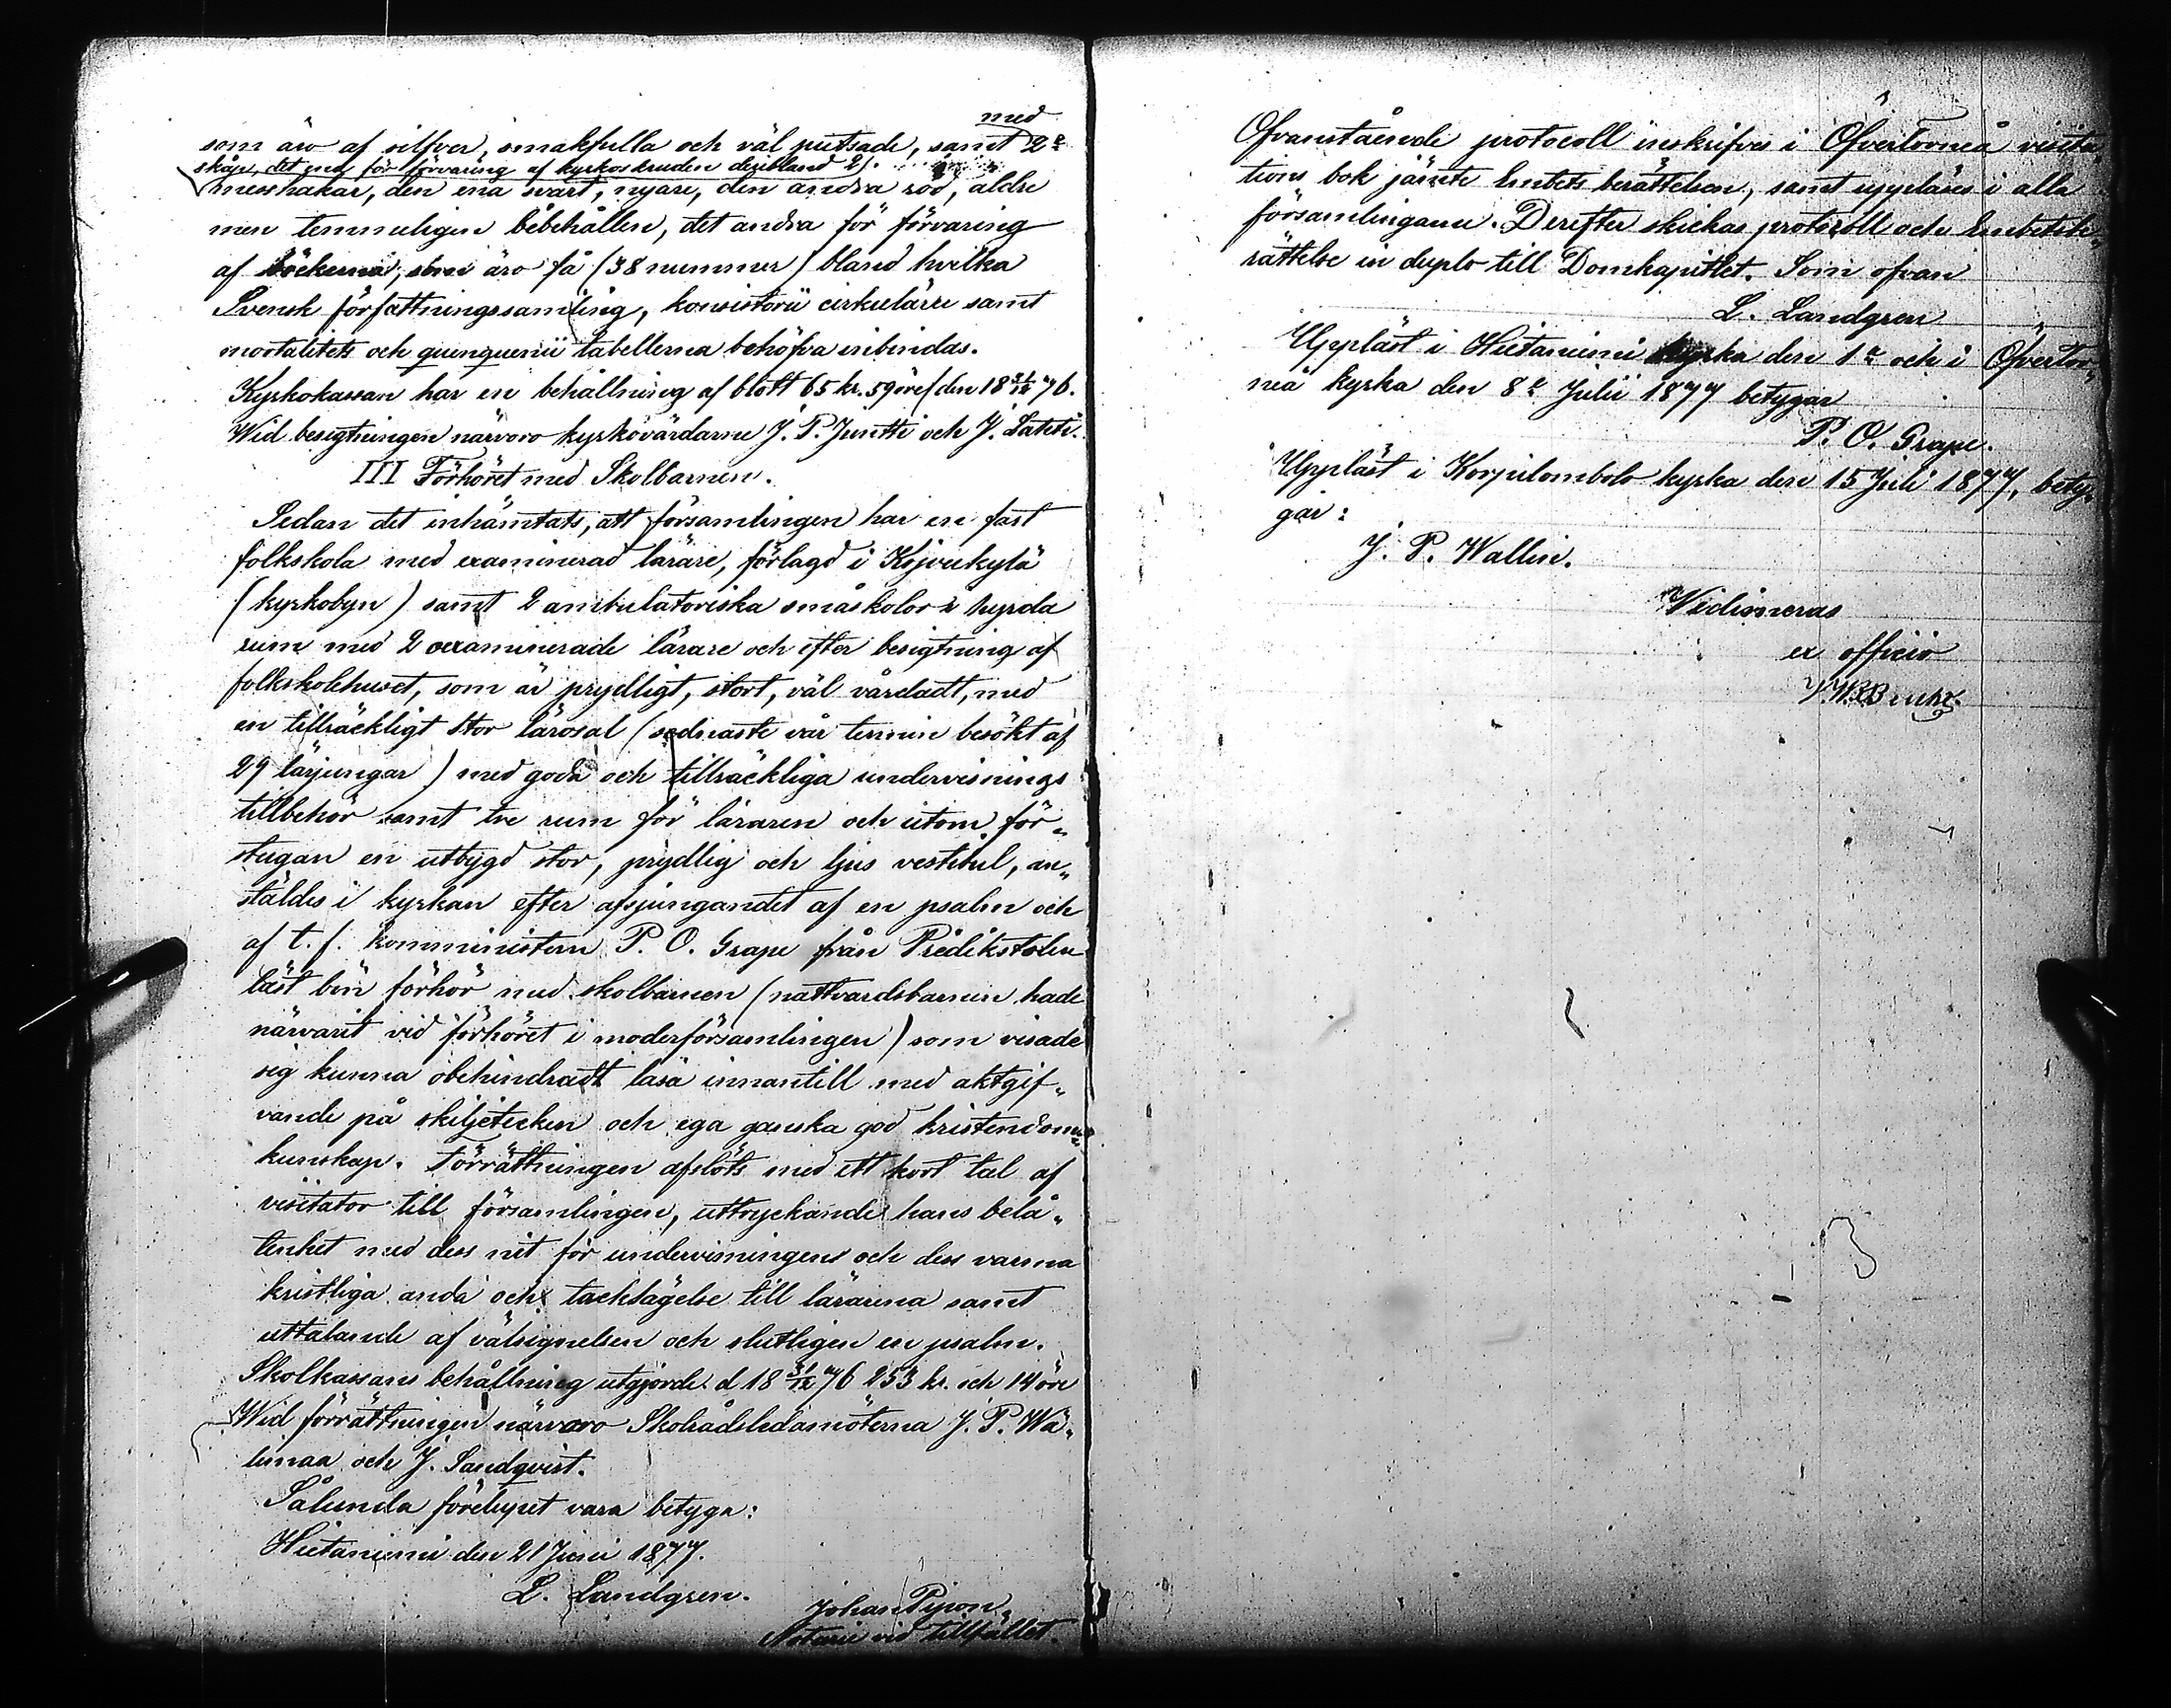 med
som äro af silfver, smakfulla och väl putsade, samt 2:e
skåp, det ena för förvaring af kyrkoskruden deribland 2).
messhakar, den ena svart, nyare, den andra röd, äldre
men temmeligen bibehållen, det andra för förvaring
af böckerna, som äro få (38 nummer) bland hvilka
Svensk författningssamling, konsistorii cirkulärer samt
mortalitets och quinquenii tabellerna behöfva inbindas.
Kyrkokassan har en behållning af blott 65 kr. 59 öre (den 18 31/12 76.
Wid besigtningen närvoro kyrkovärdarne J. P. Juntti och J. Lahti.
III Förhöret med Skolbarnen.
Sedan det inhämtats, att församlingen har en fast
folkskola med examinerad lärare, förlagd i Kyrkykylä
(kyrkobyn) samt 2 ambulatoriska småskolor i hyrda
rum med 2 oexaminerade lärare och efter besigtning af
folkskolehuset, som är prydligt, stort, väl vårdadt, med
en tillräckligt stor lärosal (sednaste vår termin besökt af
29 lärjungar) med goda och tillräckliga undervisnings
tillbehör samt tre rum för läraren och utom för„
stugan en utbygd stor, prydlig och ljus vestibul, an„
stäldes i kyrkan efter afsjungandet af en psalm och
af t. f. komministern P. O. Grape från Predikstolen
läst bön förhör med skolbarnen (nattvardsbarnen hade
närvarit vid förhöret i moderförsamlingen) som visade
sig kunna obehindradt läsa innantill med aktgif„
vande på skiljetecken och ega ganska god kristendoms„
kunskap. Förrättningen afslöts med ett kort tal af
visitator till församlingen, uttryckande hans belå„
tenhet med dess nit för undervisningen och dess varma
kristliga anda och tacksägelse till lärarena samt
uttalande af välsignelsen och slutligen en psalm.
Skolkassans behållning utgjorde d 18 31/12 76 253 kr. och 14 öre
Wid förrättningen närvoro Skolrådsledamöterna J. P. Wä„
limaa och J. Sandqvist.
Sålunda förelupet vara betyga:
Hietaniemi den 21 Juni 1877.
L. Landgren.
Johan
Notarie vid tillfället.
Ofvanstående protocoll inskrifves i Öfvertorneå visita
tions bok jämte Embets berättelsen, samt uppläses i alla
församlingarne. Derefter skickas protocoll och Embetsbe„
rättelse in duplo till Domkapitlet. Som ofvan
L. Landgren
Uppläst i Hietaniemi kyrka den 1:e och i Öfvertor„
neå kyrka den 8:e Julii 1877 betygar
P. O. Grape.
Uppläst i Korpilombolo kyrka den 15 Juli 1877, bety„
gar:
J. P. Wallin.
Vidimeras
ex officio